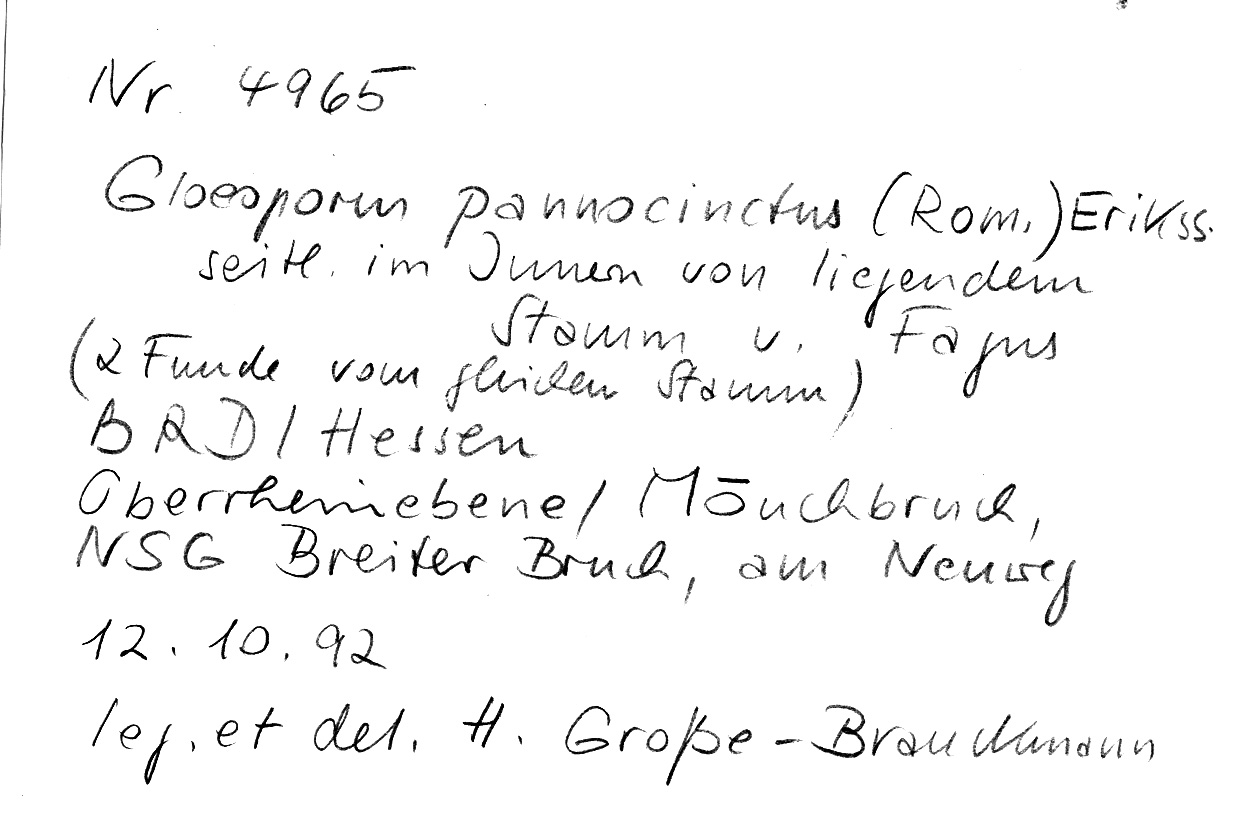 Nr 4965
Gloeoporus pannocinctus (Rom.) Erikss.
seitl. im Innern von liegendem
Stamm v. Fagus
(2 Funde vom gleichen Stamm)
BRD / Hessen
Oberrheinebene / Mönchbruch,
NSG Breiter Bruch, am Neuweg
12. 10. 92
leg. et det. H. Große-Brauckmann